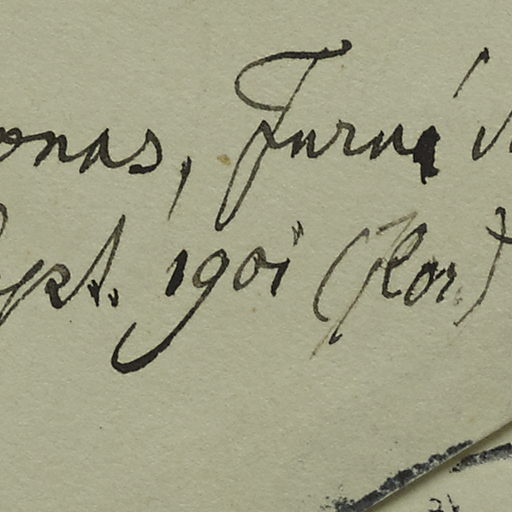 onas, Furuå
Sept. 1901 (flor.)